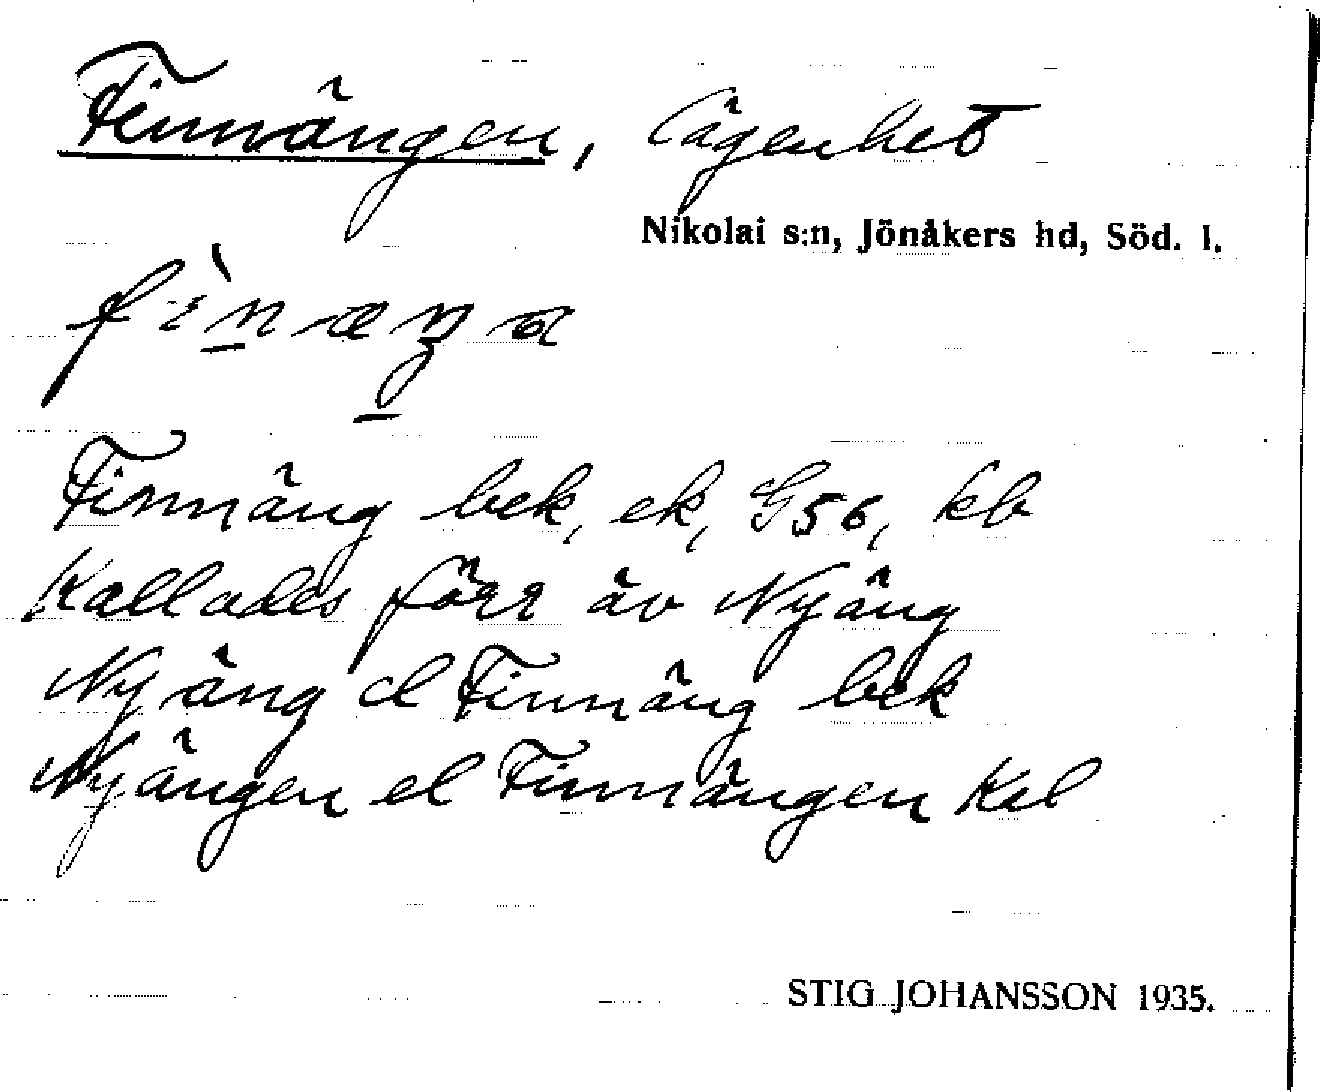 Finnängen, lägenhet
Nikolai s:n, Jönåkers hd, Söd. l.
Finnäng bek, ek, G56, kb
Kallades förr äv Nyäng
Nyäng el Finnäng bek
Nyängen el Finnängen Kal
STIG JOHANSSON 1935.